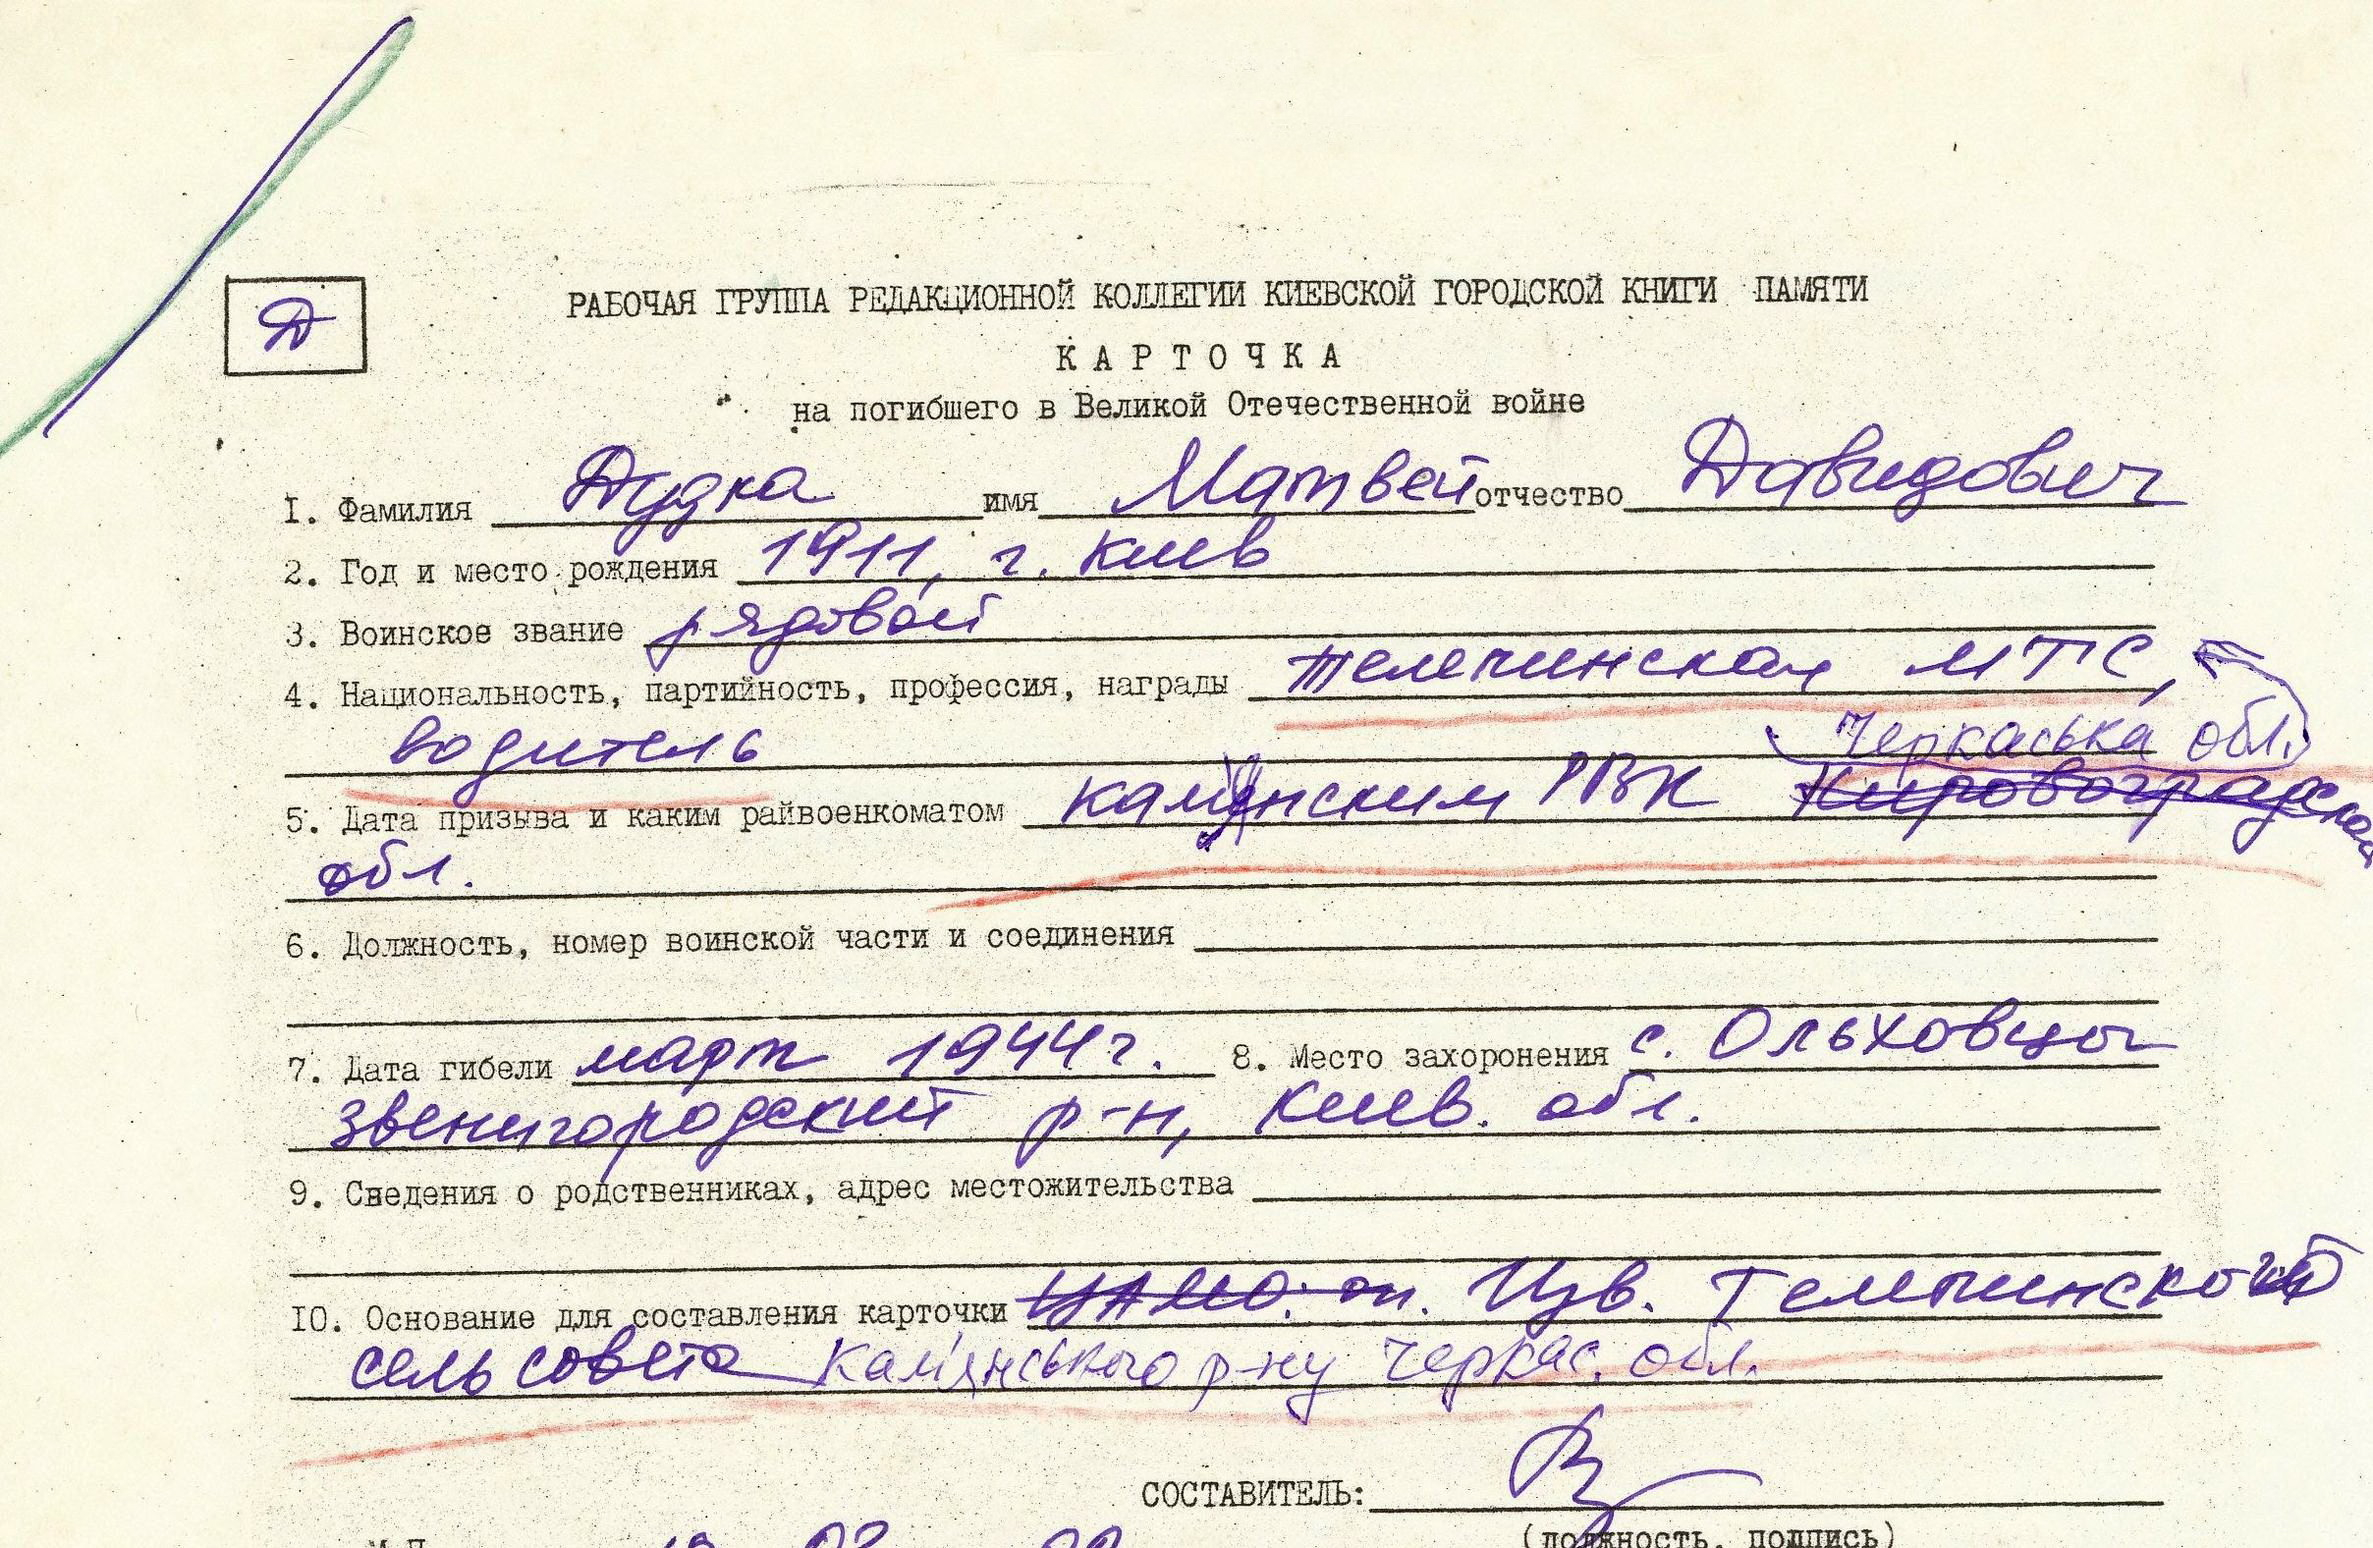 Д
РАБОЧАЯ ГРУППА РЕДАКЦИОННОЙ КОЛЛЕГИИ КИЕВСКОЙ ГОРОДСКОЙ КНИГИ ПАМЯТИ
КАРТОЧКА
на погибшего в Великой Отечественной войне
I. Фамилия Дудка имя Матвей отчество Давидович
2. Год и место рождения 1911, г. Киев
3. Воинское звание рядовой
4. Национальность, партийность, профессия, награды Телепинская МТС,
водитель Черкаська обл.
5. Дата призыва и каким райвоенкоматом Кам'янским РВК Кировоградской
обл.
6. Должность, номер воинской части и соединения
7. Дата гибели март 1944 г. 8. Место захоронения с. Ольховцы
Звенигородский р-н, Киев. обл.
9. Сведения о родственниках, адрес местожительства
IO. Основание для составления карточки ЦАМО: оп. Изв. Телепинского
сельсовета Кам'янського р-ну Черкас. обл.
СОСТАВИТЕЛЬ:
(должность, подпись)